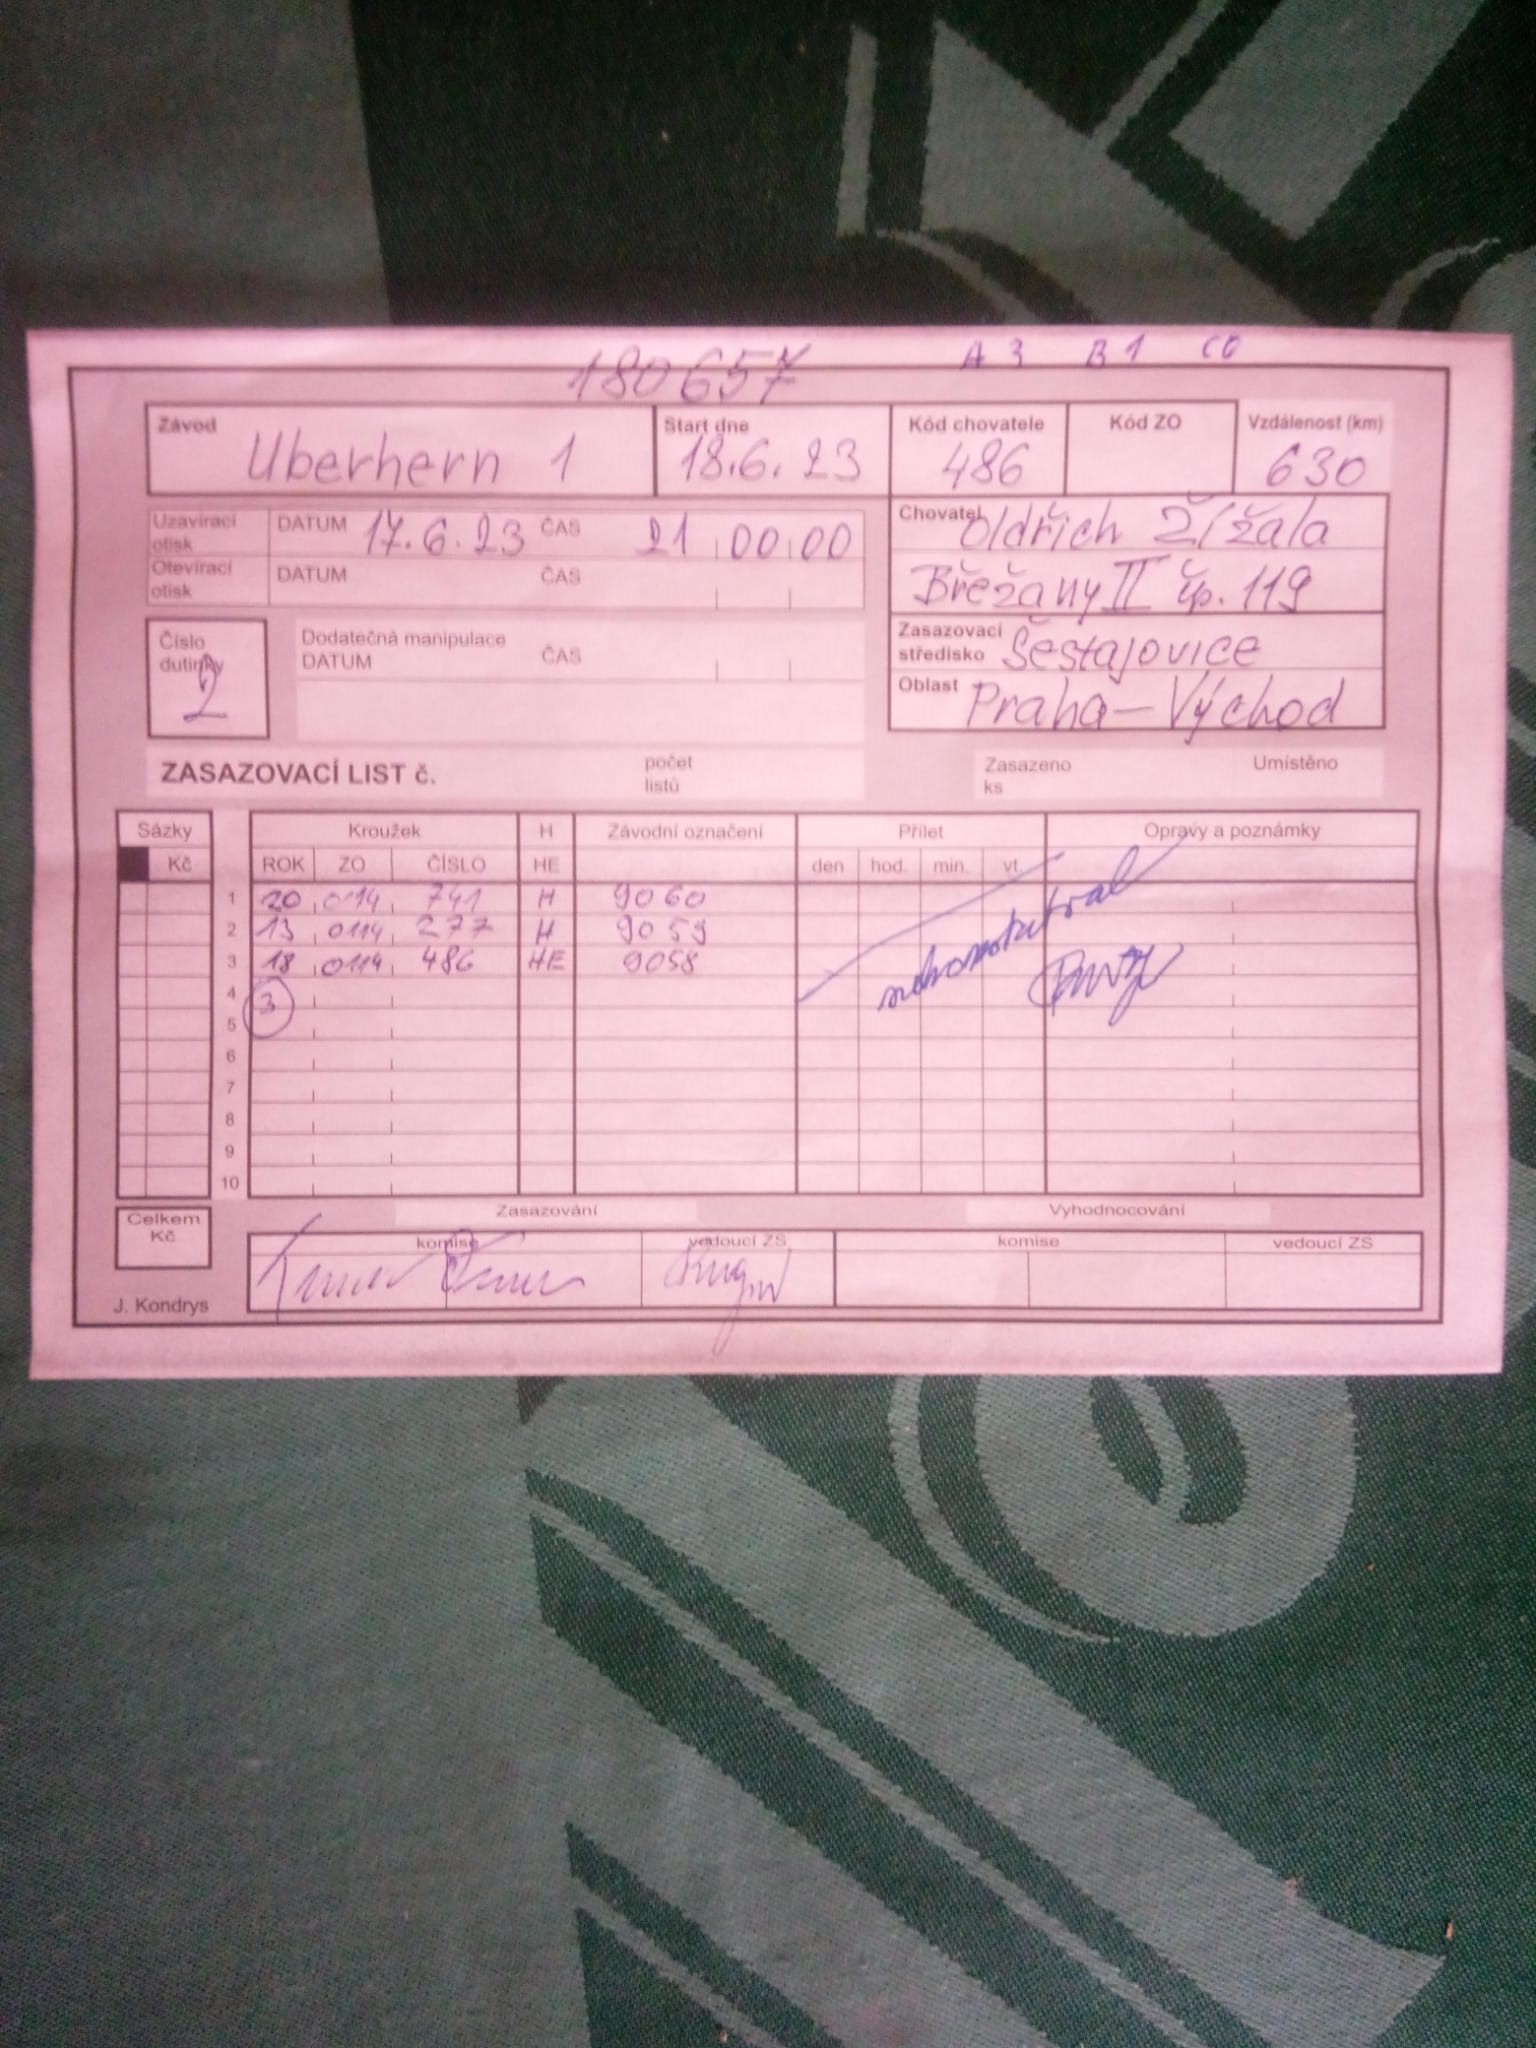 180657
A 3 B 1 C0
Závod Start dne Kód chovatele Kód ZO Vzdálenost (km)
Uberhern 1 18.6.23 486 630
Uzavírací otisk DATUM 17.6.23 ČAS 21 00 00
Chovatel Oldřich Žížala
Otevírací otisk DATUM ČAS
Břežany II čp. 119
Číslo dutinky 2
Dodatečná manipulace
DATUM ČAS
Zasazovací středisko Šestajovice
Oblast Praha-Východ
ZASAZOVACÍ LIST č. počet listů Zasazeno ks Umístěno
Sázky Kroužek H Závodní označení Přílet Opravy a poznámky
Kč ROK ZO ČÍSLO HE den hod. min. vt
1 20 0114 741 H 9060
2 13 0114 277 H 9059
3 18 0114 486 HE 9058
4 3
5
6
7
8
9
10
Celkem Kč
Zasazování Vyhodnocování
komise vedoucí ZS komise vedoucí ZS
J. Kondrys